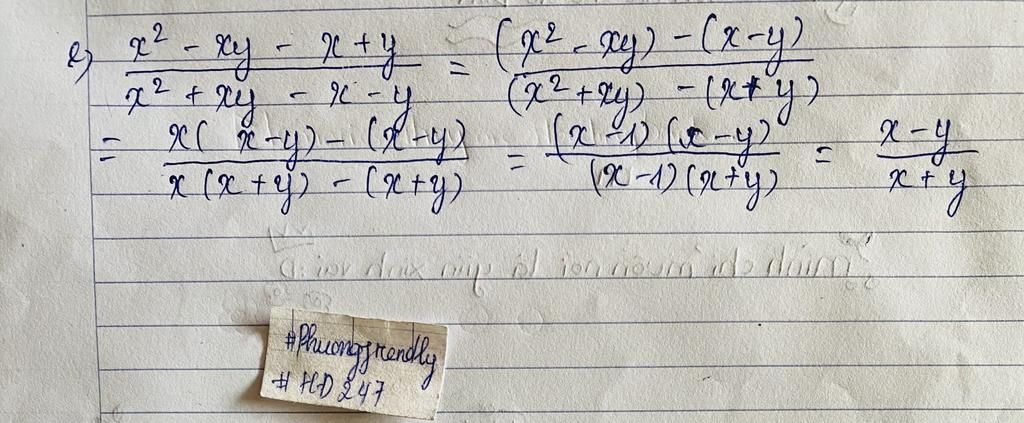 e) (x² - xy - x + y)/(x² + xy - x - y) = ((x² - xy) - (x - y))/((x² + xy) - (x + y))
= (x(x - y) - (x - y))/(x(x + y) - (x + y)) = ((x - 1)(x - y))/((x - 1)(x + y)) = (x - y)/(x + y)
#Phuongfriendly
#HD247